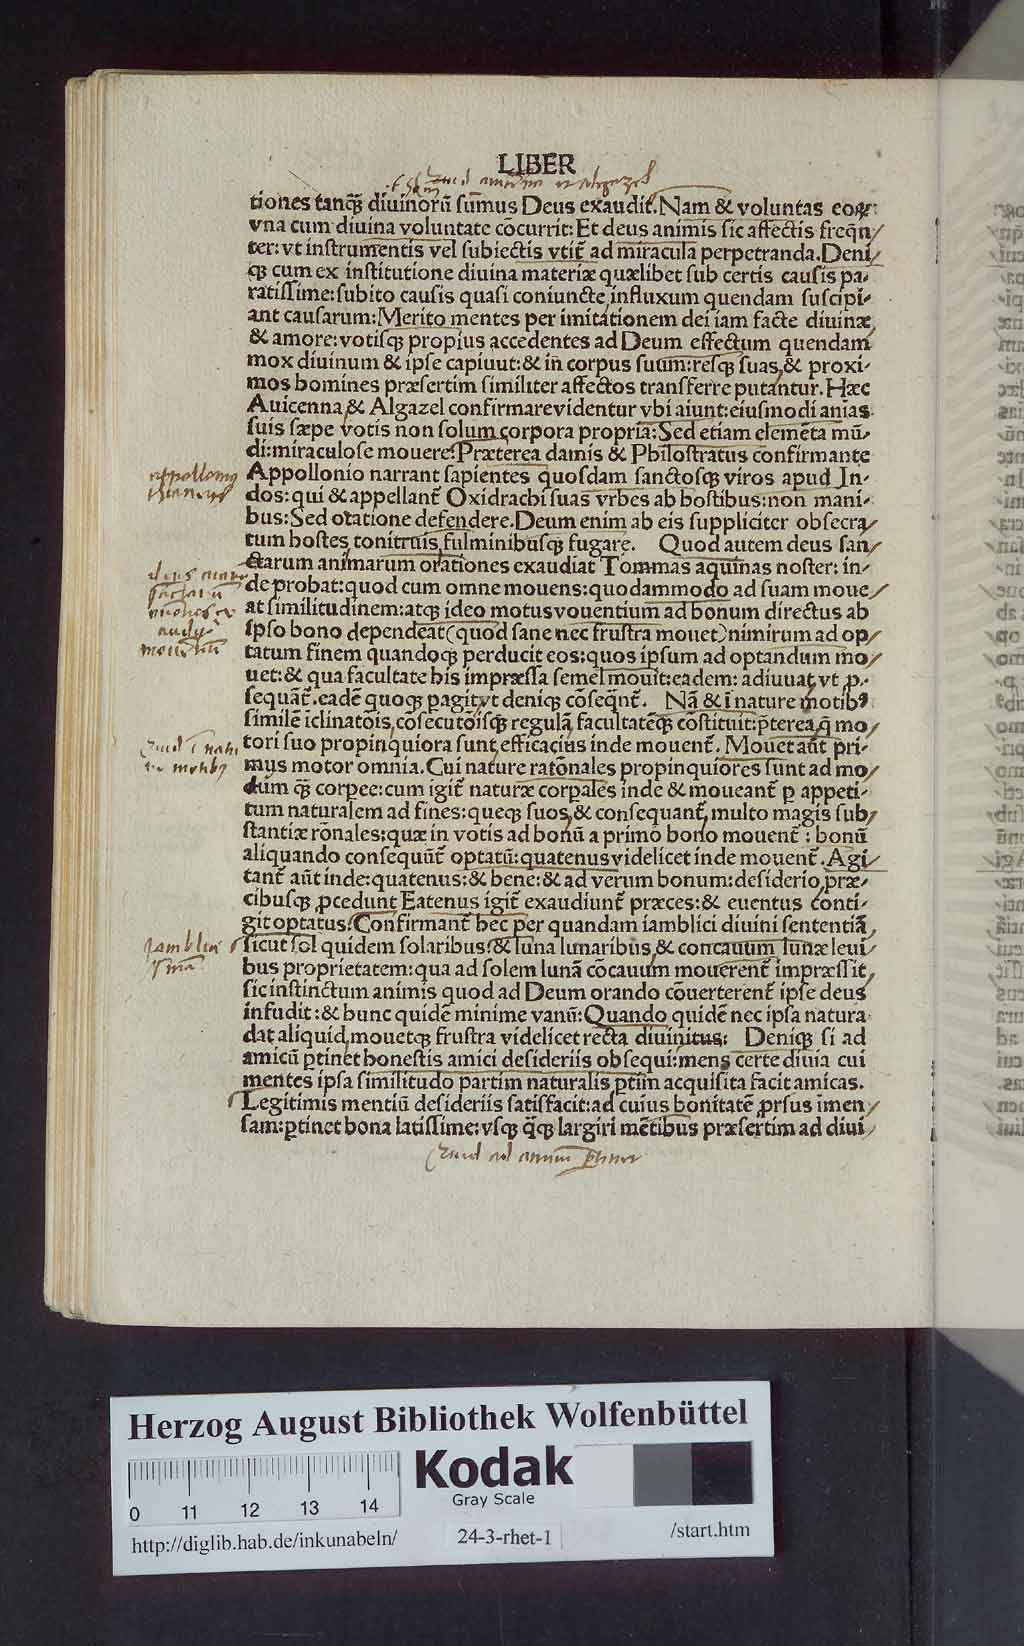 LIBER
tiones tanq̃ diuinorū sum̄us Deus exaudit. Nam & voluntas eoꝝ:
vna cum diuina voluntate cōcurrit: Et deus animis sic affectis freq̃n/
ter: vt instrumentis vel subiectis vtit̃ ad miracula perpetranda. Deni/
qꝫ cum ex institutione diuina materiæ quælibet sub certis causis pa-
ratissime: subito causis quasi coniuncte, influxum quendam suscipi-
ant causarum: Merito mentes per imitationem dei iam facte diuinæ,
& amore: votisqꝫ propius accedentes ad Deum effectum quendam
mox diuinum & ipse capiuut: & in corpus suum: resqꝫ suas, & proxi-
mos homines præsertim similiter affectos transferre putantur. Hæc
Auicenna, & Algazel confirmare videntur vbi aiunt: eiusmodi anias
suis sæpe votis non solum corpora propria: Sed etiam elemēta mū-
di: miraculose mouere: Præterea damis & Philostratus confirmante
Appollonio narrant sapientes quosdam sanctosqꝫ viros apud In-
dos: qui & appellant̃ Oxidrachi suas vrbes ab hostibus: non mani-
bus: Sed oratione defendere. Deum enim ab eis suppliciter obsecra/
tum hostes tonitruis, fulminibusqꝫ fugare. Quod autem deus san/
ctarum animarum orationes exaudiat Tommas aquinas noster: in-
de probat: quod cum omne mouens: quodammodo ad suam moue/
at similitudinem: atqꝫ ideo motus vouentium ad bonum directus ab
ipso bono dependeat (quod sane nec frustra mouet) nimirum ad op/
tatum finem quandoqꝫ perducit eos: quos ipsum ad optandum mo/
uet: & qua facultate his impræssa semel mouit: eadem: adiuuat, vt ꝑ-
sequāt̃. eadē quoqꝫ pagit, vt deniqꝫ cōseq̃nt̃. Nā & ī nature motibꝰ
similē iclinatōis, cōsecutōisqꝫ regulā, facultatēqꝫ cōstituit: p̃terea, q̃ mo/
tori suo propinquiora sunt, efficacius inde mouent̃. Mouet aūt pri-
mus motor omnia. Cui nature ratōnales propinquiores sunt ad mo/
dum q̃ꝫ corpee: cum igit̃ naturæ corpales inde & moueant̃ p appeti-
tum naturalem ad fines: queqꝫ suos, & consequant̃, multo magis sub/
stantiæ rōnales: quæ in votis ad bonū a primo bono mouent̃: bonū
aliquando consequūt̃ optatū: quatenus videlicet inde mouent̃. Agi/
tant̃ aūt inde: quatenus: & bene: & ad verum bonum: desiderio, præ-
cibusqꝫ ꝓcedunt Eatenus igit̃ exaudiunt̃ præces: & euentus conti-
git optatus. Confirmant̃ hec per quandam iamblici diuini sententiā,
sicut sol quidem solaribus: & luna lunaribus, & concauum lunæ leui/
bus proprietatem: qua ad solem lunā cōcauum mouerent̃ impræssit,
sic instinctum animis quod ad Deum orando cōuerterent̃ ipse deus
infudit: & hunc quidē minime vanū: Quando quidē nec ipsa natura
dat aliquid, mouetqꝫ frustra videlicet recta diuinitus: Deniqꝫ si ad
amicū ꝑtinet honestis amici desideriis obsequi: mens certe diuia cui
mentes ipsa similitudo partim naturalis ꝑtim acquisita facit amicas.
Legitimis mentiū desideriis satisfacit: ad cuius bonitatē, ꝓrsus imen/
sam: ꝑtinet bona latissime: vsqꝫ q̃qꝫ largiri mētibus præsertim ad diui/
appollonius
Iamblici
Herzog August Bibliothek Wolfenbüttel
Kodak
Gray Scale
0 11 12 13 14
http://diglib.hab.de/inkunabeln/ 24-3-rhet-1 /start.htm